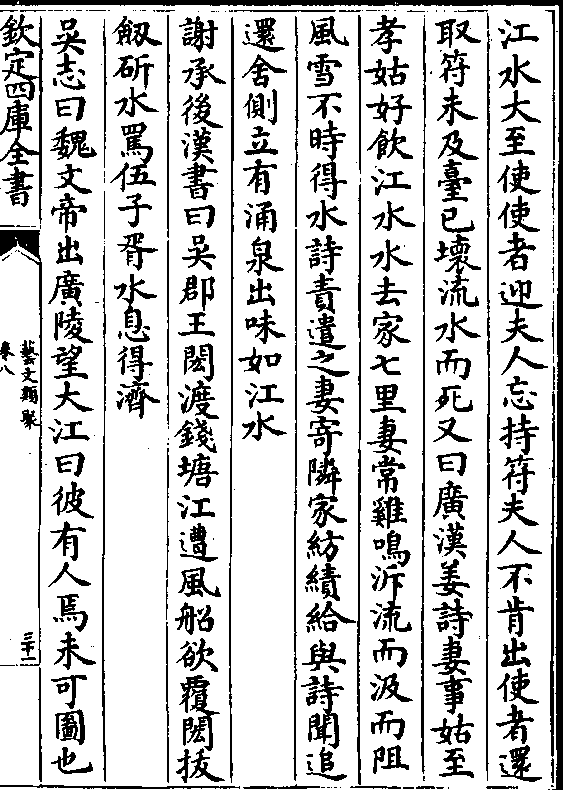 江水大至使使者迎夫人忘持符夫人不肯出使者還
取符未及臺已壞流水而死又曰廣漢姜詩妻事姑至
孝姑好飲江水水去家七里妻常雞鳴泝流而汲而阻
風雪不時得水詩責遣之妻寄隣家紡績給與詩聞追
還舍側立有涌泉出味如江水
謝承後漢書曰吳郡王閎渡錢塘江遭風船欲覆閎拔
劒斫水罵伍子胥水息得濟
吳志曰魏文帝出廣陵望大江曰彼有人焉未可圖也
欽定四庫全書
藝文類聚
卷八
三十一